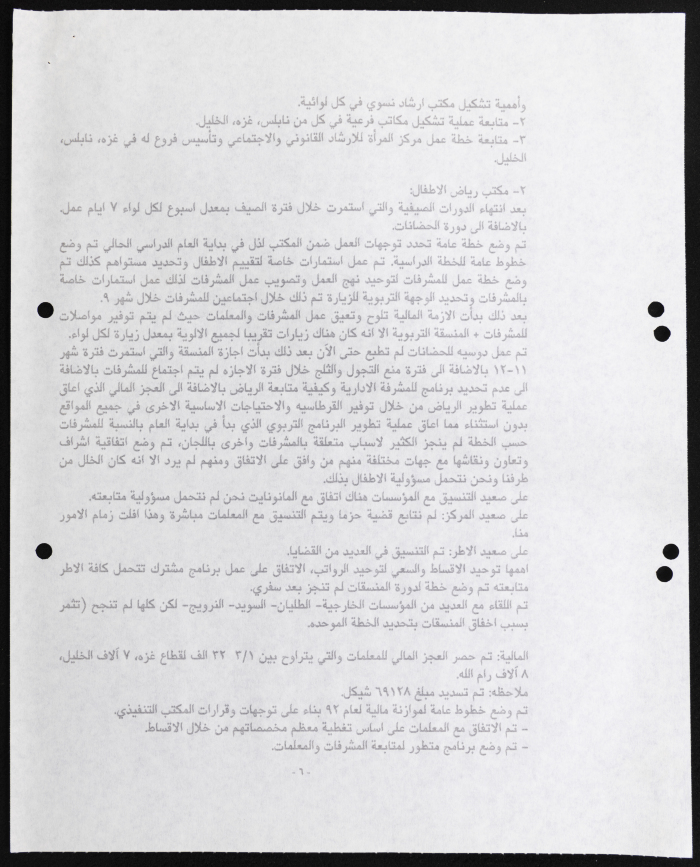 وأهمية تشكيل مكتب ارشاد نسوي في كل لوائية.
٢- متابعة عملية تشكيل مكاتب فرعية في كل من نابلس، غزه، الخليل.
٣- متابعة خطة عمل مركز المرأة للارشاد القانوني والاجتماعي وتأسيس فروع له في غزه، نابلس،
الخليل.
٢- مكتب رياض الاطفال:
بعد انتهاء الدورات الصيفية والتي استمرت خلال فترة الصيف بمعدل اسبوع لكل لواء ٧ ايام عمل.
بالاضافة الى دورة الحضانات.
تم وضع خطة عامة تحدد توجهات العمل ضمن المكتب لذل في بداية العام الدراسي الحالي تم وضع
خطوط عامة للخطة الدراسية. تم عمل استمارات خاصة لتقييم الاطفال وتحديد مستواهم كذلك تم
وضع خطة عمل للمشرفات لتوحيد نهج العمل وتصويب عمل المشرفات لذلك عمل استمارات خاصة
بالمشرفات وتحديد الوجهة التربوية للزيارة تم ذلك خلال اجتماعين للمشرفات خلال شهر ٩.
بعد ذلك بدأت الازمة المالية تلوح وتعيق عمل المشرفات والمعلمات حيث لم يتم توفير مواصلات
للمشرفات + المنسقة التربوية الا انه كان هناك زيارات تقريبا لجميع الالوية بمعدل زيارة لكل لواء.
تم عمل دوسيه للحضانات لم تطبع حتى الآن بعد ذلك بدأت اجازة المنسقة والتي استمرت فترة شهر
١١-١٢ بالاضافة الى فترة منع التجول والثلج خلال فترة الاجازه لم يتم اجتماع للمشرفات بالاضافة
الى عدم تحديد برنامج للمشرفة الادارية وكيفية متابعة الرياض بالاضافة الى العجز المالي الذي اعاق
عملية تطوير الرياض من خلال توفير القرطاسيه والاحتياجات الاساسية الاخرى في جميع المواقع
بدون استثناء مما اعاق عملية تطوير البرنامج التربوي الذي بدأ في بداية العام بالنسبة للمشرفات
حسب الخطة لم ينجز الكثير لاسباب متعلقة بالمشرفات واخرى باللجان، تم وضع اتفاقية اشراف
وتعاون ونقاشها مع جهات مختلفة منهم من وافق على الاتفاق ومنهم لم يرد الا انه كان الخلل من
طرفنا ونحن نتحمل مسؤولية الاطفال بذلك.
على صعيد التنسيق مع المؤسسات هناك اتفاق مع المانونايت نحن لم نتحمل مسؤولية متابعته.
على صعيد المركز: لم نتابع قضية حزما ويتم التنسيق مع المعلمات مباشرة وهذا افلت زمام الامور
منا.
على صعيد الاطر: تم التنسيق في العديد من القضايا.
اهمها توحيد الاقساط والسعي لتوحيد الرواتب، الاتفاق على عمل برنامج مشترك تتحمل كافة الاطر
متابعته تم وضع خطة لدورة المنسقات لم تنجز بعد سفري.
تم اللقاء مع العديد من المؤسسات الخارجية- الطليان- السويد- النرويج- لكن كلها لم تنجح (تتثمر
بسبب اخفاق المنسقات بتحديد الخطة الموحده.
المالية: تم حصر العجز المالي للمعلمات والتي يتراوح بين ٣/١ ٢٢ الف لقطاع غزه، ٧ آلاف الخليل،
٨ آلاف رام الله.
ملاحظه: تم تسديد مبلغ ٦٩١٢٨ شيكل.
تم وضع خطوط عامة لموازنة مالية لعام ٩٢ بناء على توجهات وقرارات المكتب التنفيذي.
- تم الاتفاق مع المعلمات على اساس تغطية معظم مخصصاتهم من خلال الاقساط.
- تم وضع برنامج متطور لمتابعة المشرفات والمعلمات.
-٦٠